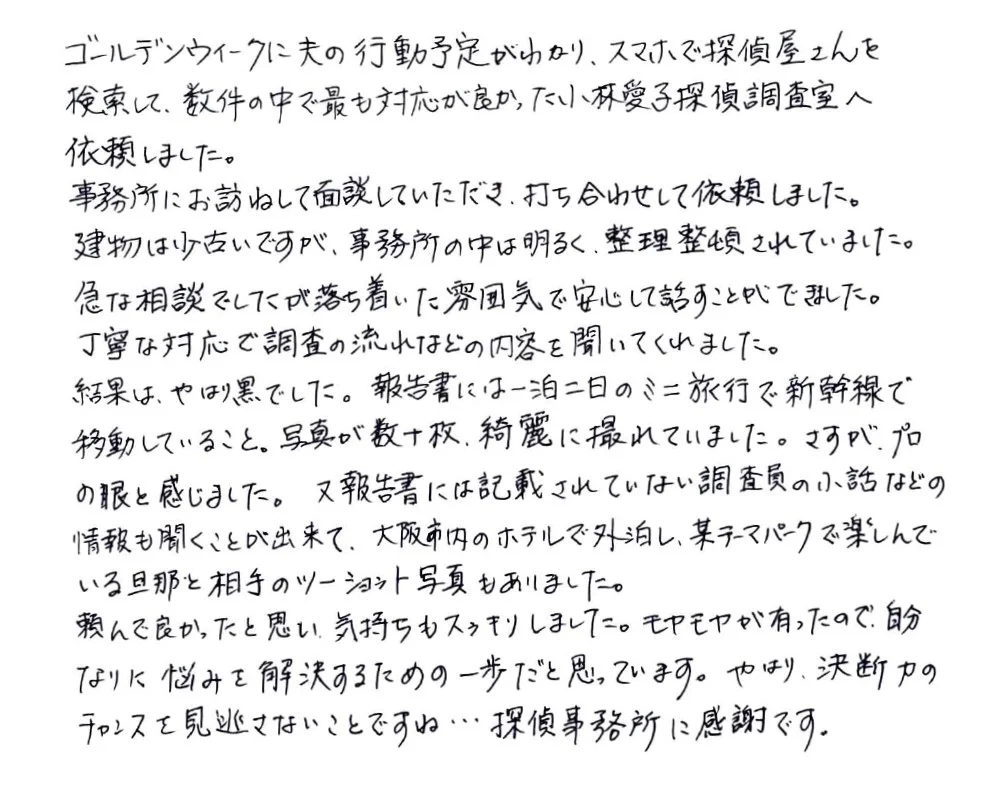 ゴールデンウィークに夫の行動予定がわかり、スマホで探偵屋さんを
検索して、数件の中で最も対応が良かった小林愛子探偵調査室へ
依頼しました。
事務所にお訪ねして面談していただき、打ち合わせして依頼しました。
建物は少古いですが、事務所の中は明るく、整理整頓されていました。
急な相談でしたが落ち着いた雰囲気で安心して話すことができました。
丁寧な対応で調査の流れなどの内容を聞いてくれました。
結果は、やはり黒でした。報告書には一泊二日のミニ旅行で新幹線で
移動していること。写真が数十枚、綺麗に撮れていました。さすが、プロ
の眼と感じました。又報告書には記載されていない調査員の小話などの
情報も聞くことが出来て、大阪市内のホテルで外泊し、某テーマパークで楽しんで
いる旦那と相手のツーショット写真もありました。
頼んで良かったと思い、気持ちもスッキリしました。モヤモヤが有ったので、自分
なりに悩みを解決するための一歩だと思っています。やはり、決断力の
チャンスを見逃さないことですね…探偵事務所に感謝です。